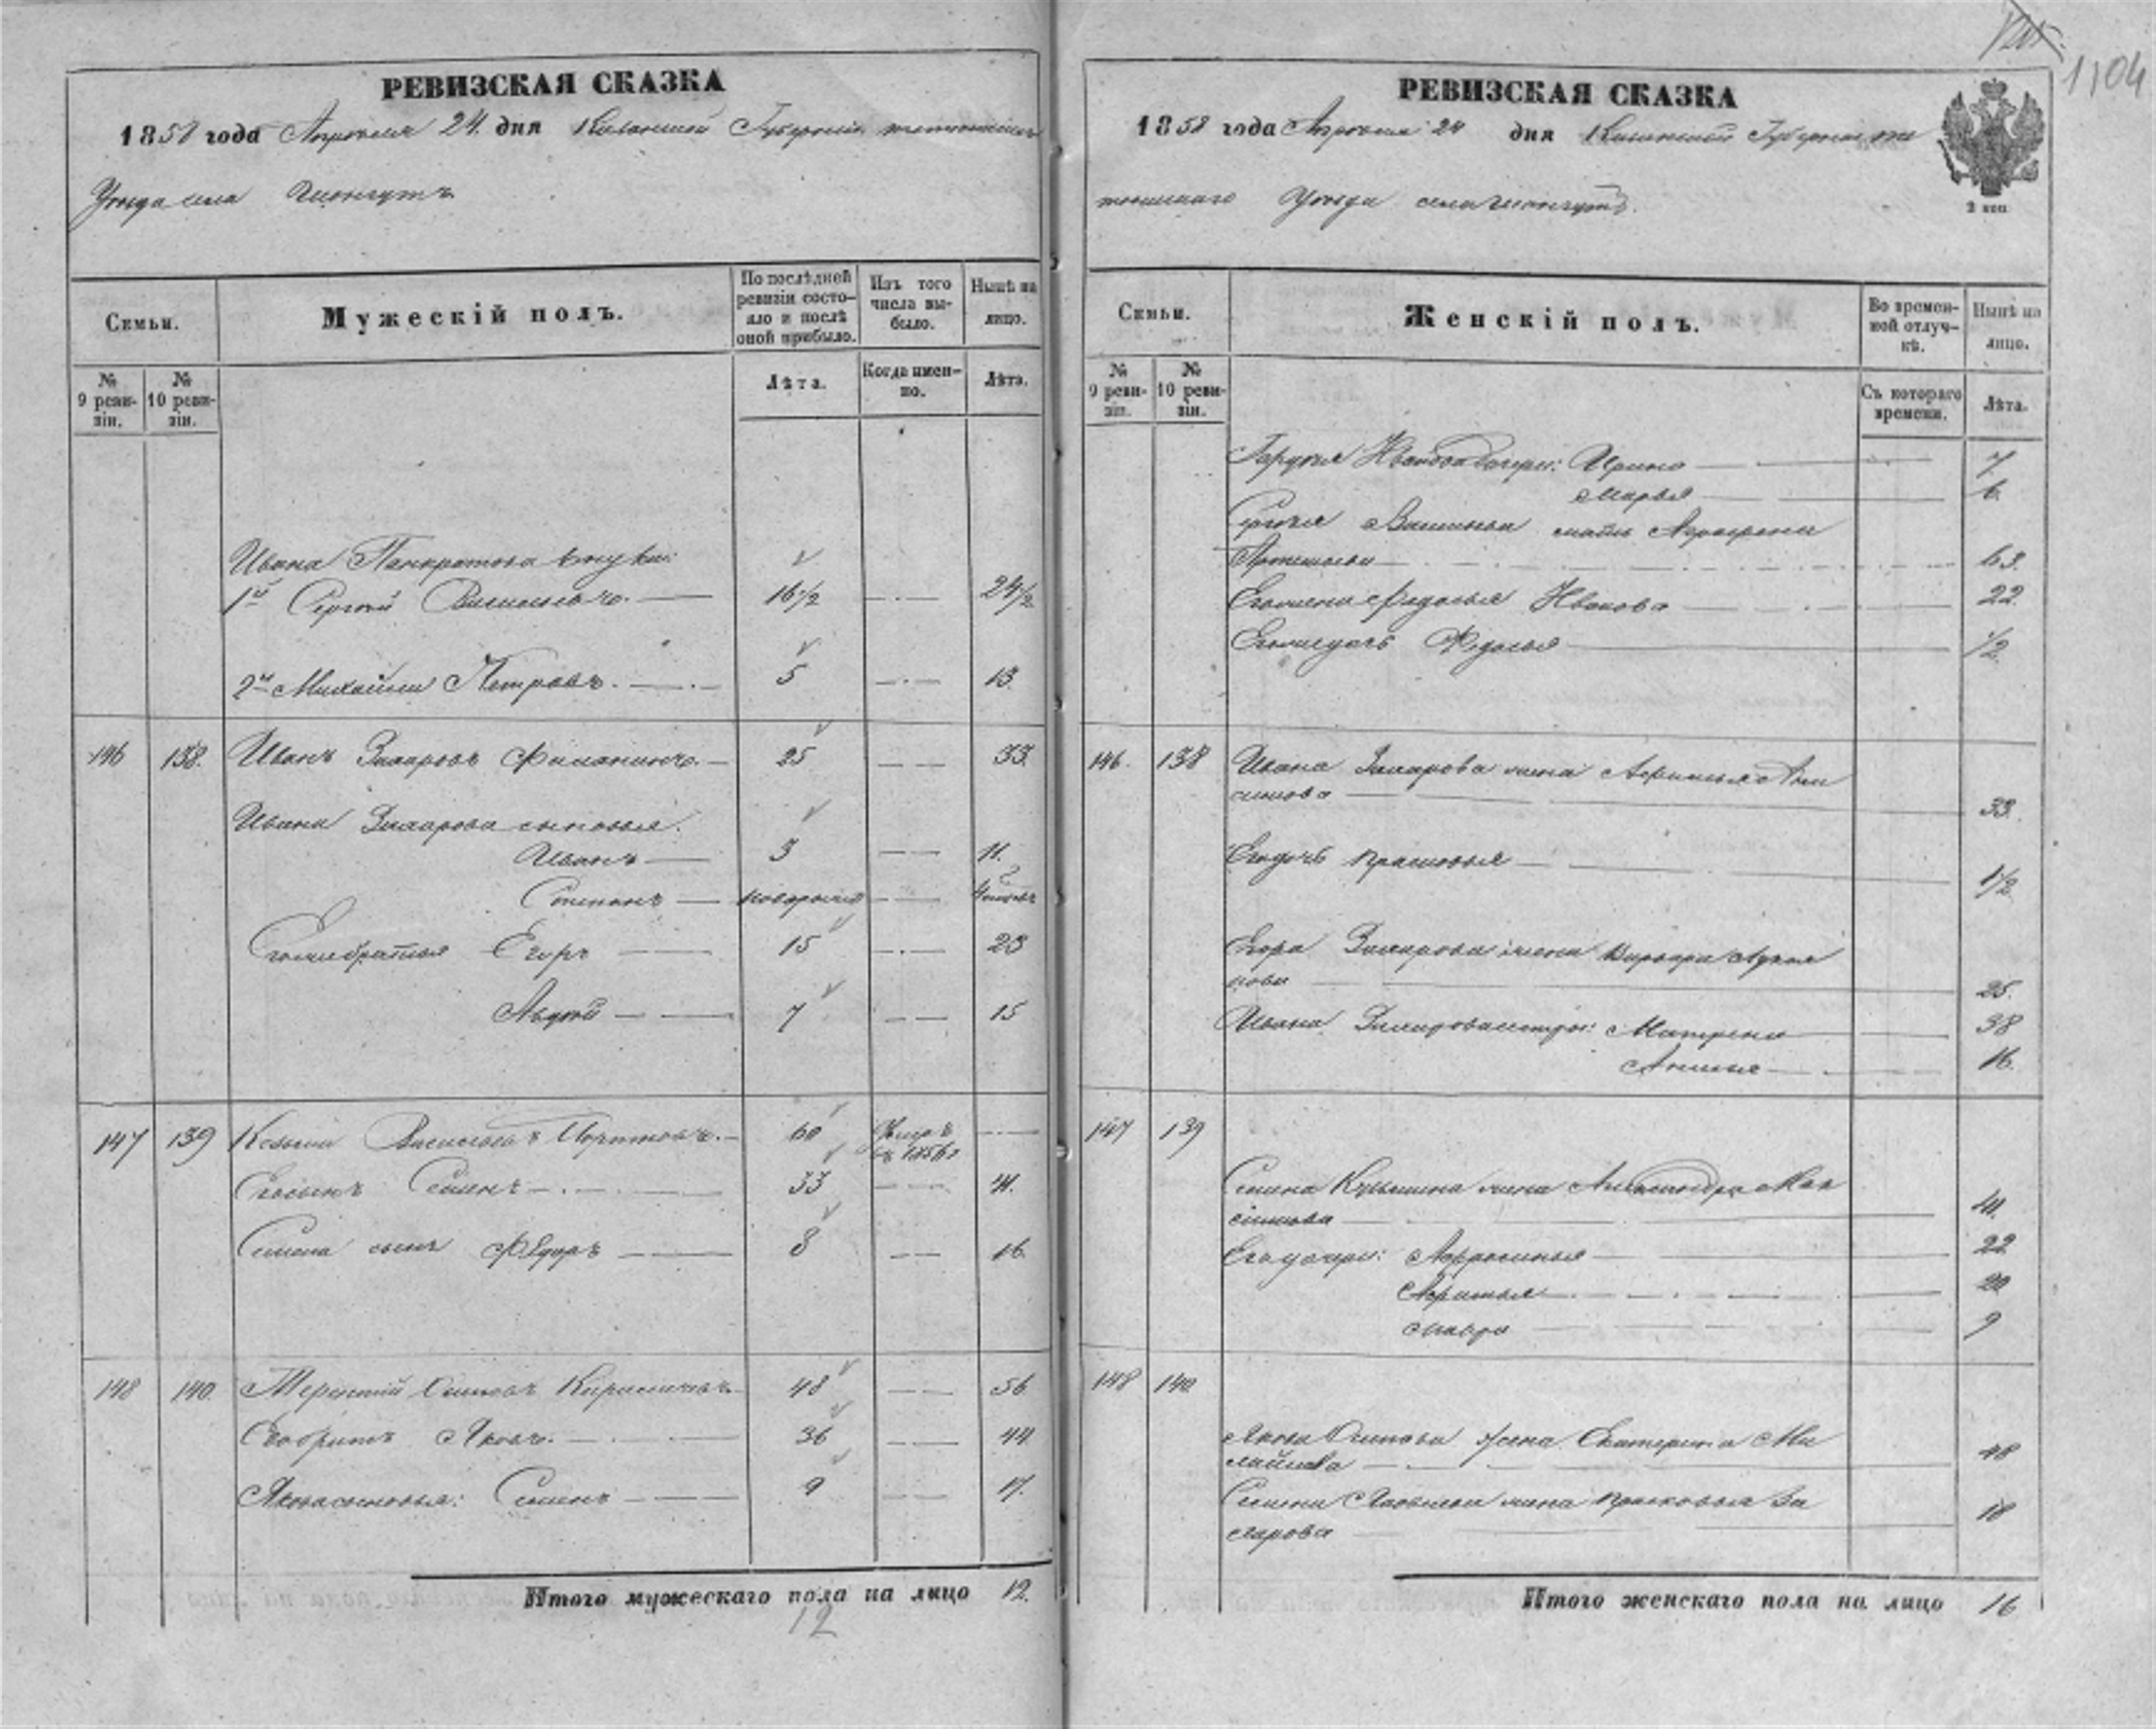 РЕВИЗСКАЯ СКАЗКА
1858 года Апреля 24 дня Казанской Губернии тетюшскаго
Уезда села
Семьи.
Мужескій полъ.
По послѣдней ревизіи состо-
яло и послѣ
оной прибыло.
Изъ того
числа вы-
было.
Нынѣ на
лицо.
№
9 реви-
зіи.
№
10 реви-
зіи.
Лѣта.
Когда имен-
но.
Лѣта.
Ивана Панкратова внуки:
1й Сергей Васильевъ. 16 1/2 24 1/2
2й Михайла Петровъ. 5 13.
146 138. Иванъ Захаровъ 25 33.
Ивана Захарова сыновья:
Иванъ 3 11.
Степанъ новорожден
Его же братья Егоръ 15 23
Авдей 7 15
147 139 Козьма Васильевъ 60 Умеръ
въ 1856г
Его сынъ Семенъ 33 41.
Семена сынъ Федоръ 8 16.
148 140. Терентий Осиповъ 48 56
Его братъ Яковъ. 36 44
Якова сыновья: Семенъ 9 17.
Итого мужескаго пола на лицо 12.
12
1104
РЕВИЗСКАЯ СКАЗКА
1858 года Апреля 24 дня Казанской Губернии те
тюшскаго Уезда села
2 коп.
Семьи.
Женскій полъ.
Во времен-
ной отлуч-
кѣ.
Нынѣ на
лицо.
№
9 реви-
зіи.
№
10 реви-
зіи.
Съ котораго
времени.
Лѣта.
Иванова дочери: Ирина 7
Марья 6
Сергея Васильева мать Аграфена
Артемьева 63.
Его жена Федосья Иванова 22.
Его же дочь Федосья 1/2
146. 138 Ивана Захарова жена Афимья Ани
симова 33.
Его дочь Прасковья 1/2
Егора Захарова жена Варвара Лукья
нова 25.
Ивана Захарова сестры: Матрена 38
Анисья 16.
147 139
Семена Кузьмина жена Александра Мак
симова 41.
Его дочери: Афросинья 22
Афимья 20
Мавра 9
148 140
Якова Осипова жена Екатерина Ми
хайлова 48
Семена Яковлева жена Прасковья За
харова 18
Итого женскаго пола на лицо 16